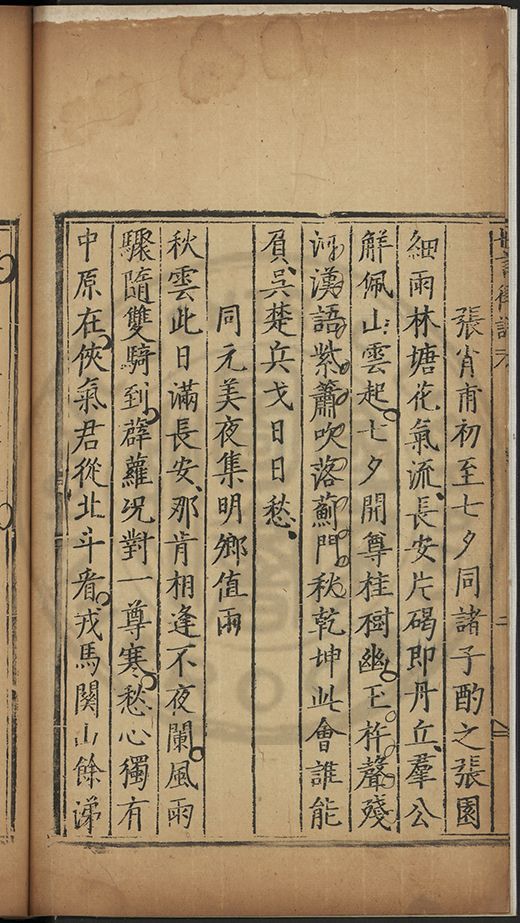 張肖甫初至七夕同諸子酌之張園
細雨林塘花氣流長安片碣即丹丘羣公
觧佩山雲起七夕開尊桂樹幽玉杵聲殘
河漢語紫簫吹落薊門秋乾坤此會誰能
負吳楚兵戈日日愁
同元美夜集明卿值雨
秋雲此日滿長安那肯相逢不夜闌風雨
驟隨雙騎到薜蘿况對一尊寒愁心獨有
中原在俠氣君從北斗看戎馬関山餘涕